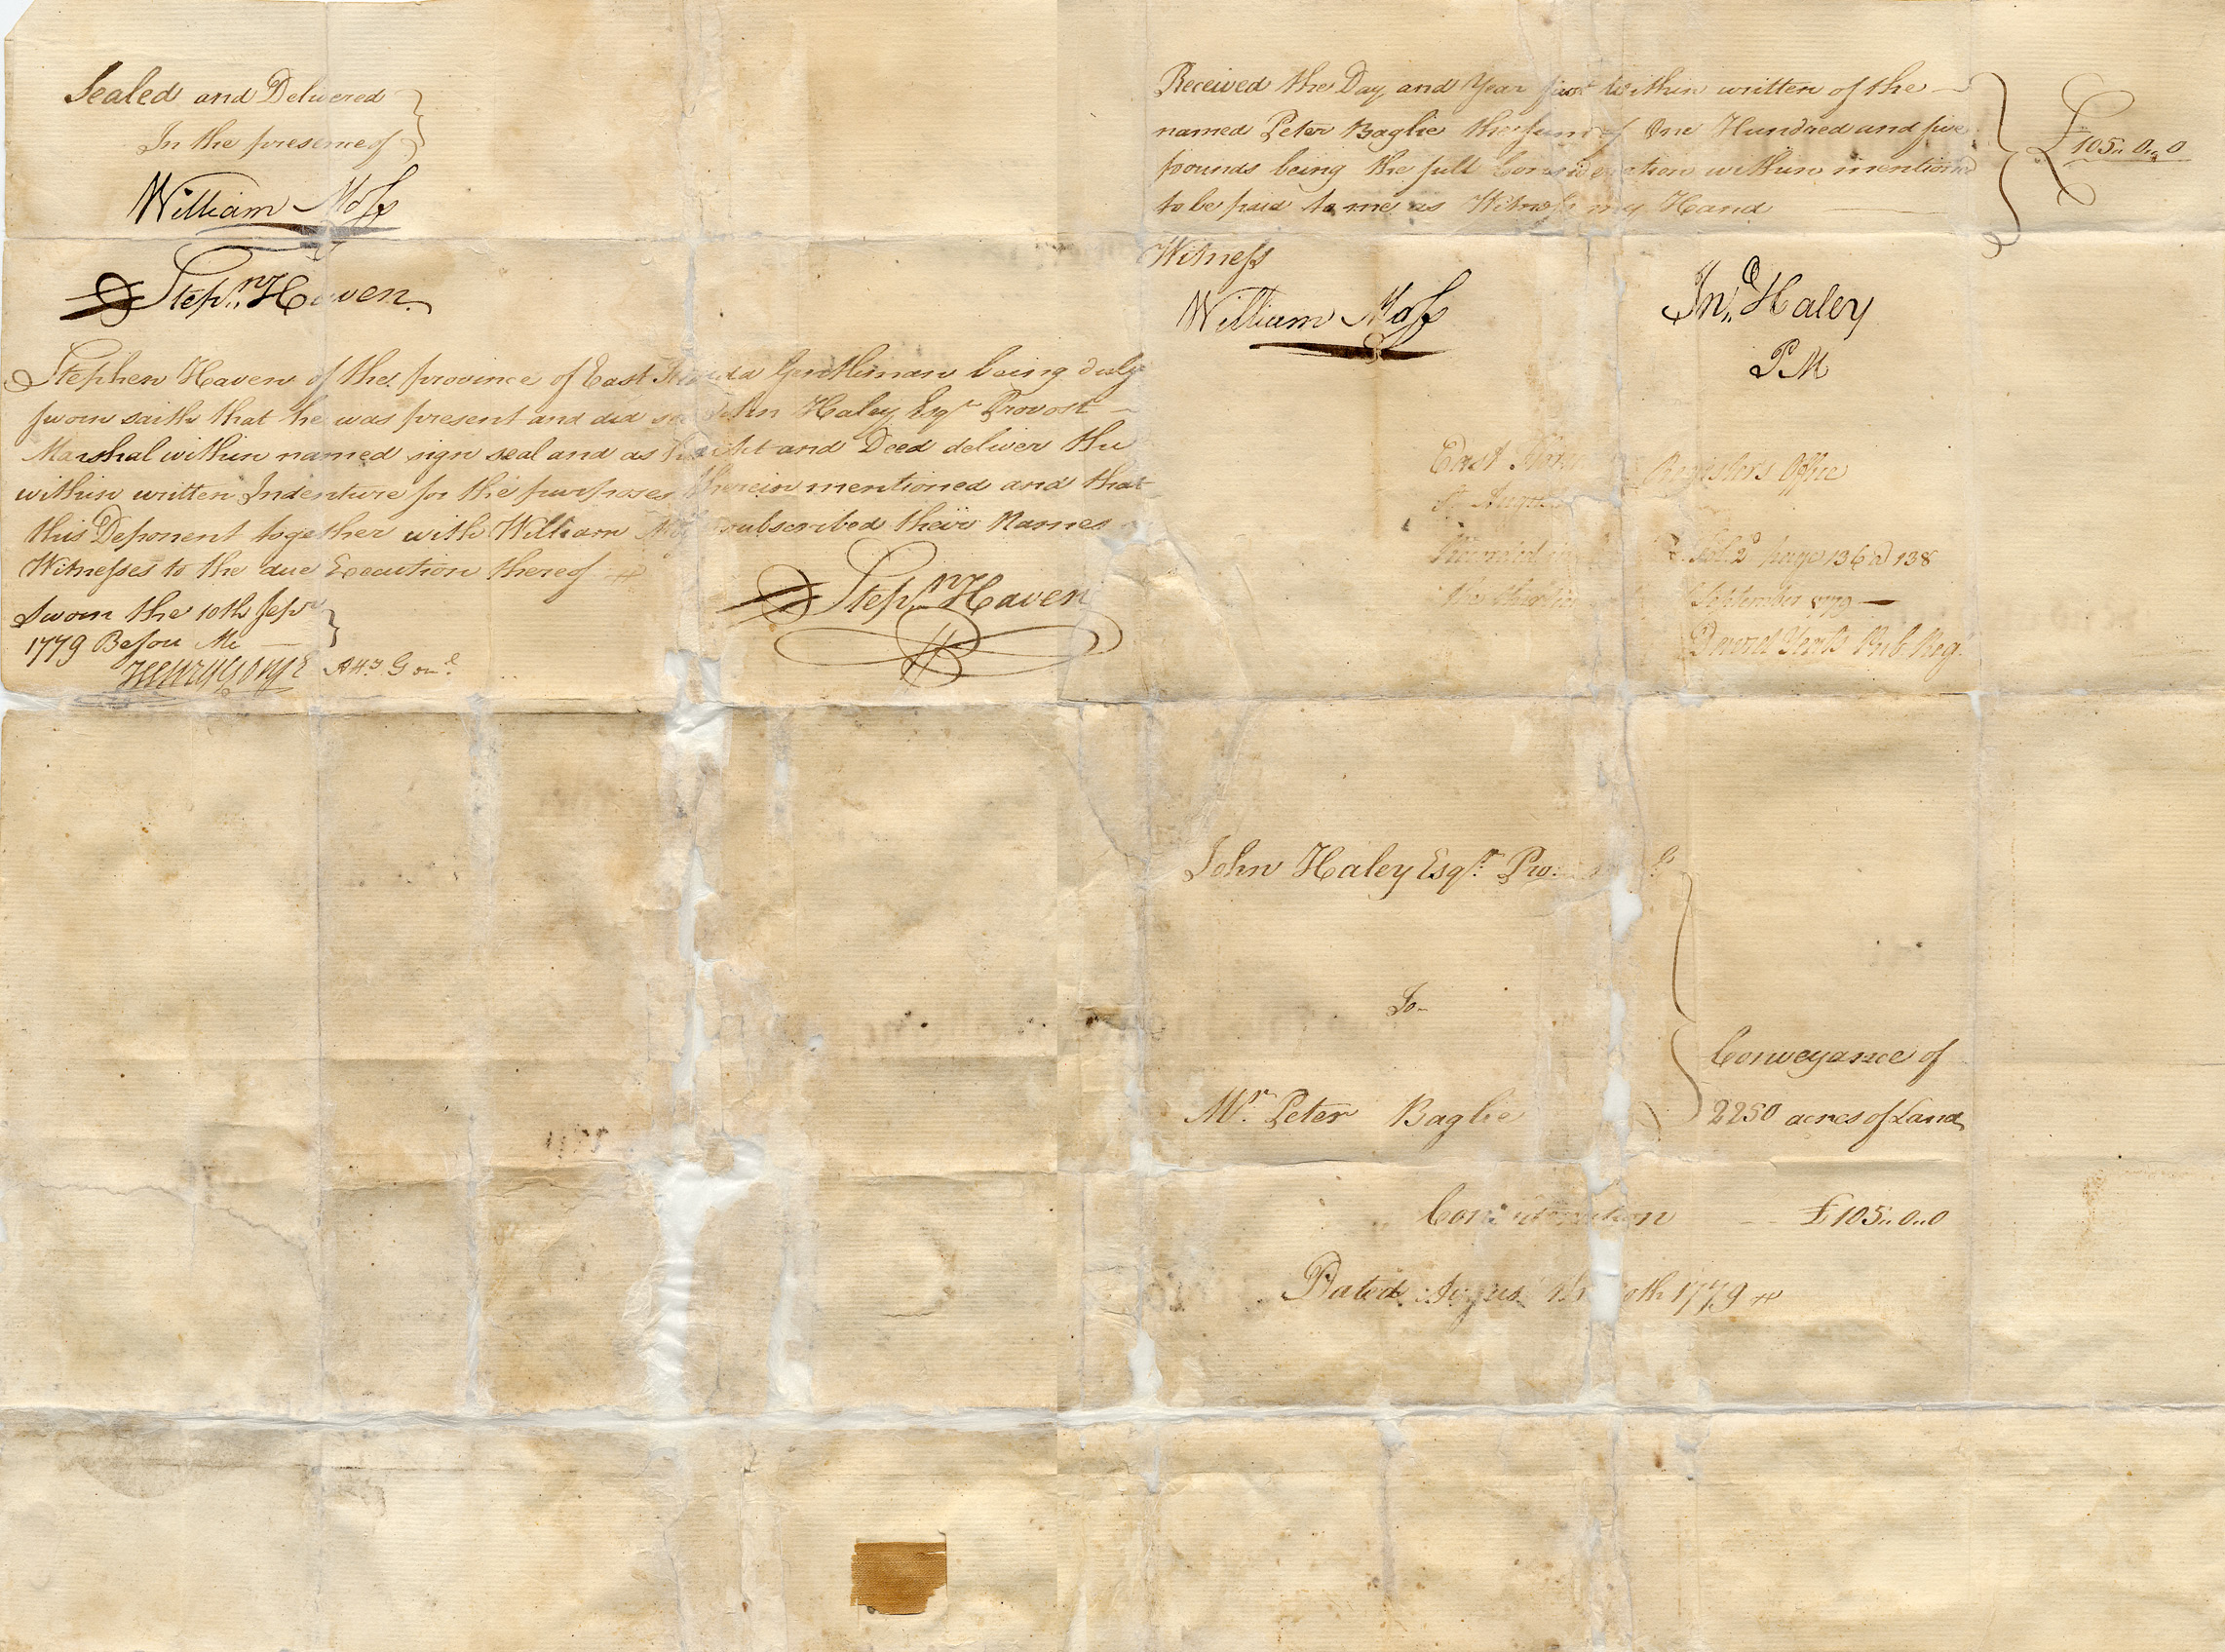 Sealed and Delivered
In the presence of
William Moss
Stepn. Haven
Stephen Haven of the province of East Gentleman being duly
sworn saith that he was present and did see John Haley Esqr Provost
Marshal within named sign seal and as his Act and Deed deliver the
within written Indenture for the purposes therein mentioned and that
this Deponent together with William Moss subscribed their Names
Witnesses to the due Execution thereof
Sworn the 10th Sepr
1779 Before Me
Stepn. Haven
Henry Yonge Atty Genl.
Received the Day and Year first within written of the
named Peter Baglie the sum of One Hundred and five
pounds being the full Consideration within mentioned
to be paid to me as Witness my Hand
£105..0..0
Witness
William Moss
Jno. Haley
PM
East Registers Office
St
Recorded page 136 @ 138
September 1779
David Yeats Pub Reg.
John Haley Esqr. Pro
To
Mr. Peter Baglie
Conveyance of
2250 acres of Land
Consideration £105..0..0
Dated 1779